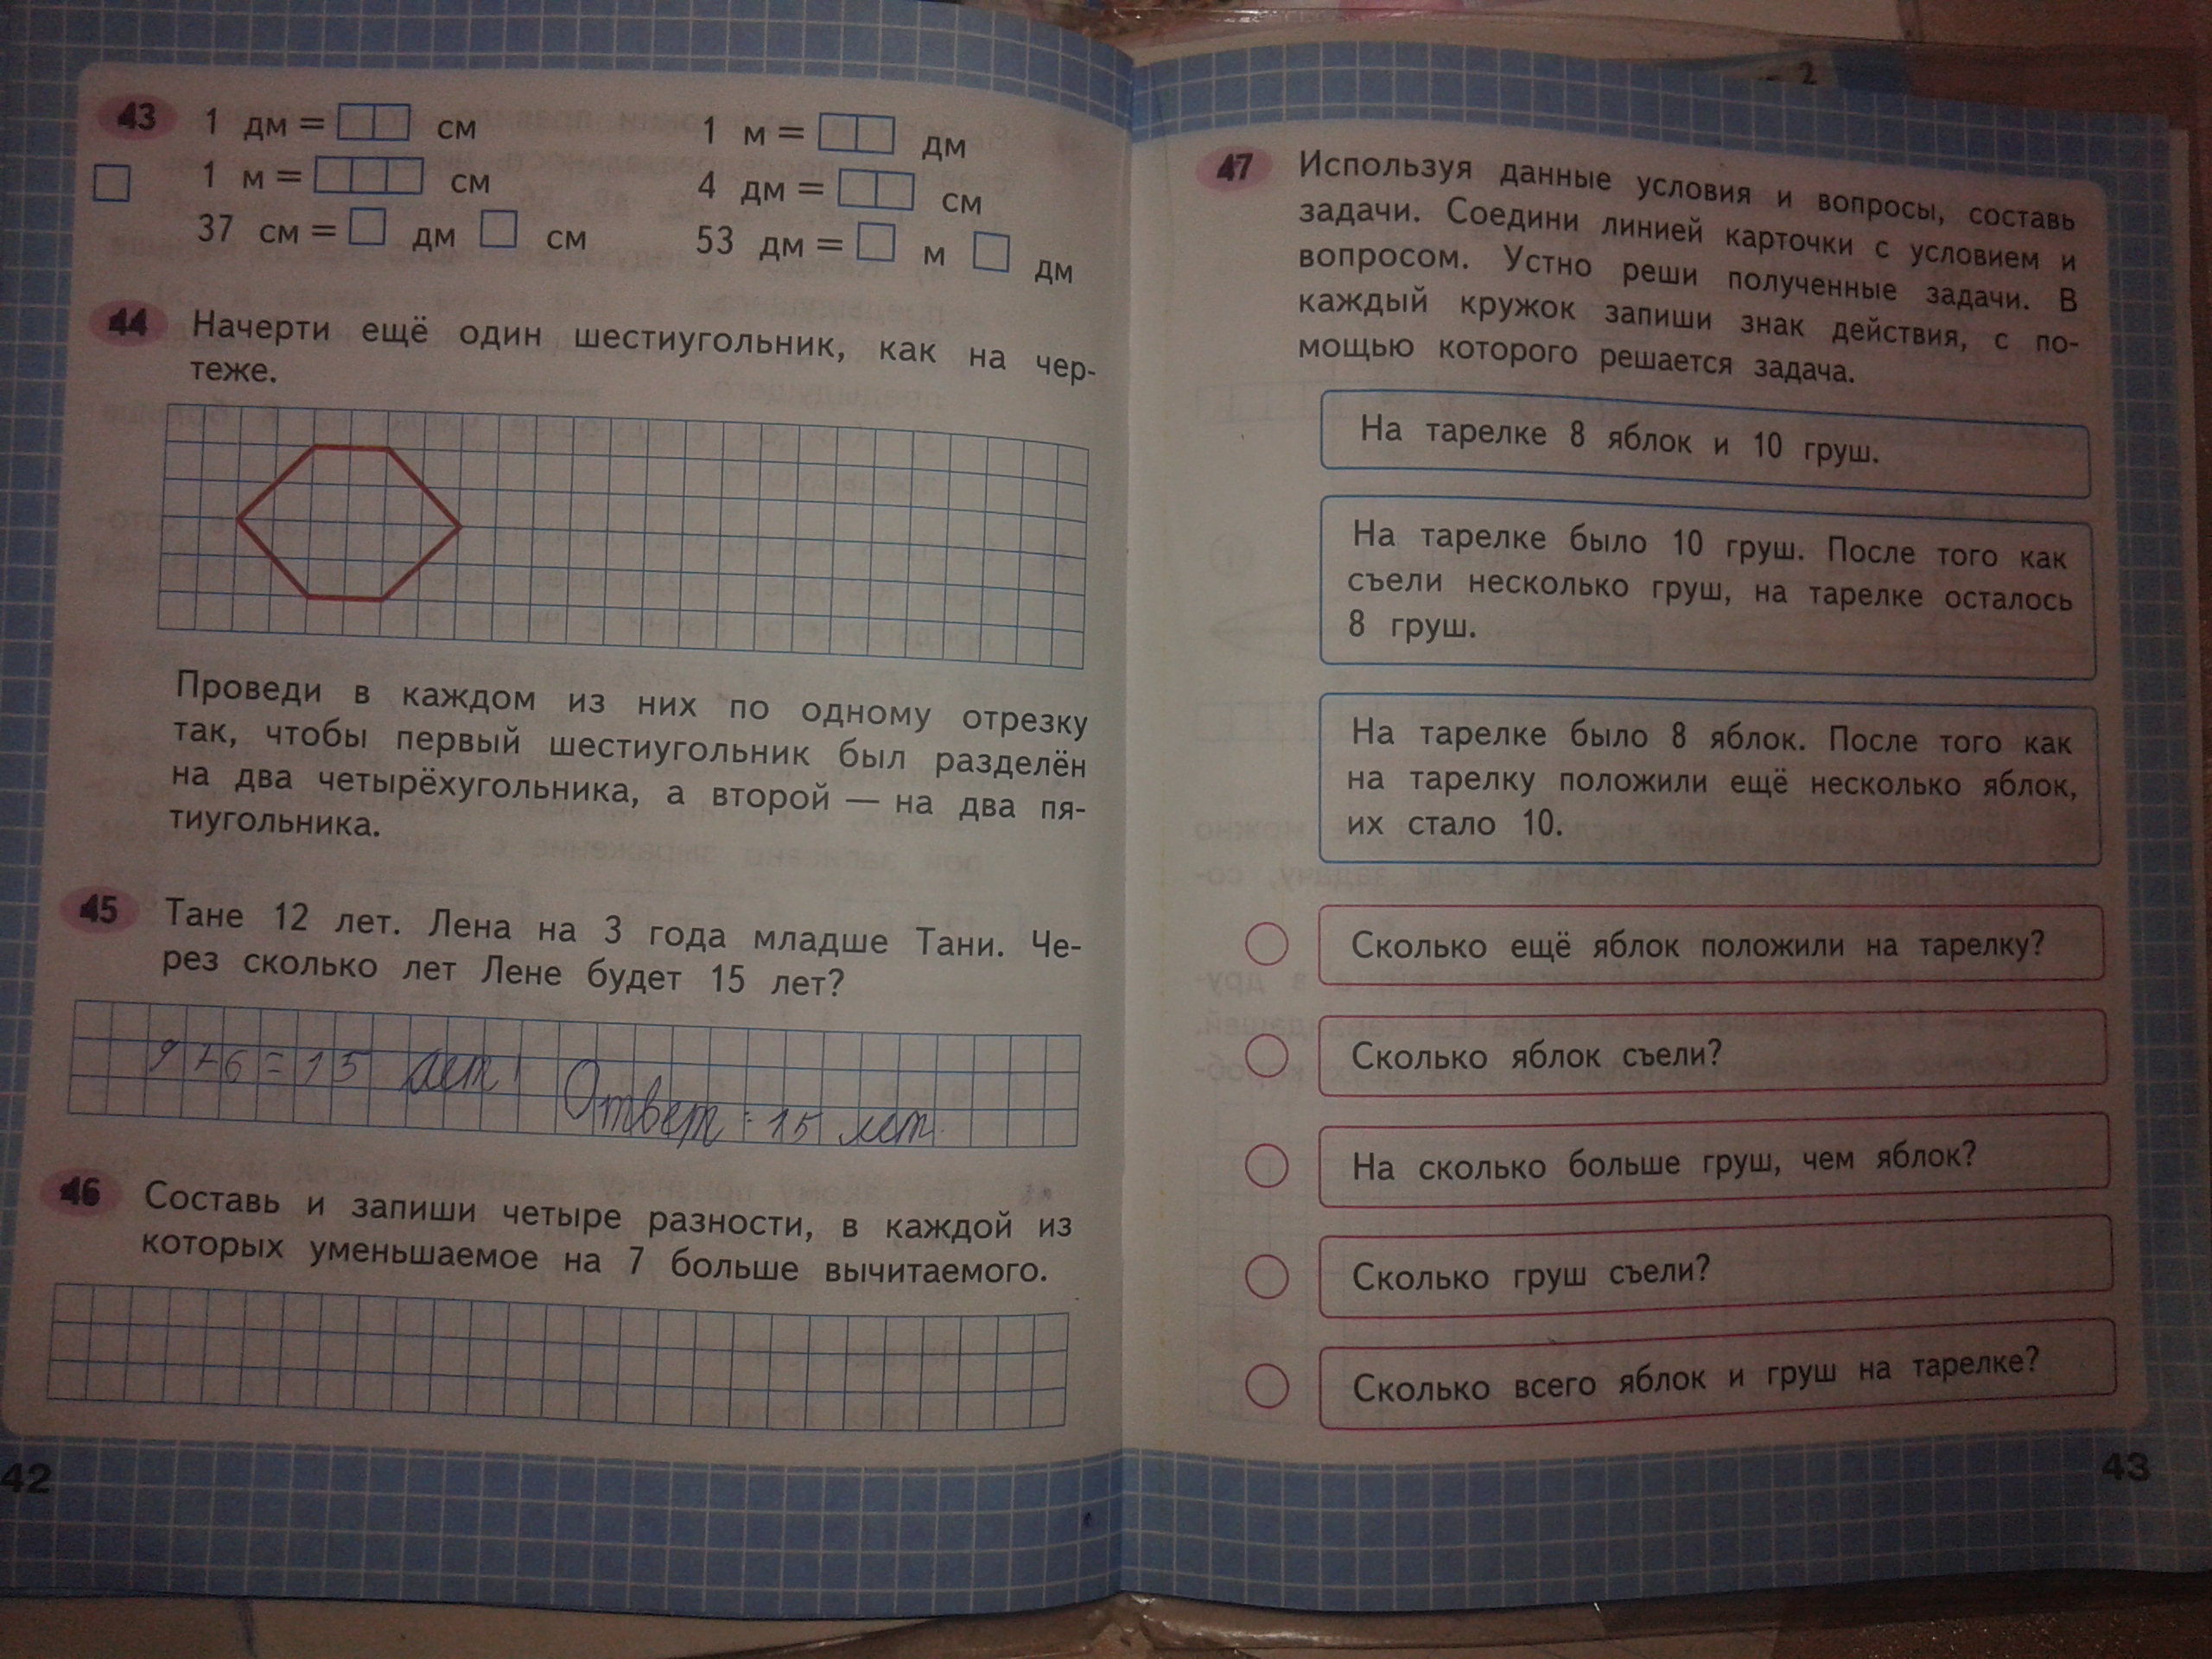 43 1 дм = см 1 м = дм
1 м = см 4 дм = см
37 см = дм см 53 дм = м дм
44 Начерти ещё один шестиугольник, как на чер-
теже.
Проведи в каждом из них по одному отрезку
так, чтобы первый шестиугольник был разделён
на два четырёхугольника, а второй — на два пя-
тиугольника.
45 Тане 12 лет. Лена на 3 года младше Тани. Че-
рез сколько лет Лене будет 15 лет?
9+6=15 лет
Ответ: 15 лет.
46 Составь и запиши четыре разности, в каждой из
которых уменьшаемое на 7 больше вычитаемого.
42
2
47 Используя данные условия и вопросы, составь
задачи. Соедини линией карточки с условием и
вопросом. Устно реши полученные задачи. В
каждый кружок запиши знак действия, с по-
мощью которого решается задача.
На тарелке 8 яблок и 10 груш.
На тарелке было 10 груш. После того как
съели несколько груш, на тарелке осталось
8 груш.
На тарелке было 8 яблок. После того как
на тарелку положили ещё несколько яблок,
их стало 10.
Сколько ещё яблок положили на тарелку?
Сколько яблок съели?
На сколько больше груш, чем яблок?
Сколько груш съели?
Сколько всего яблок и груш на тарелке?
43